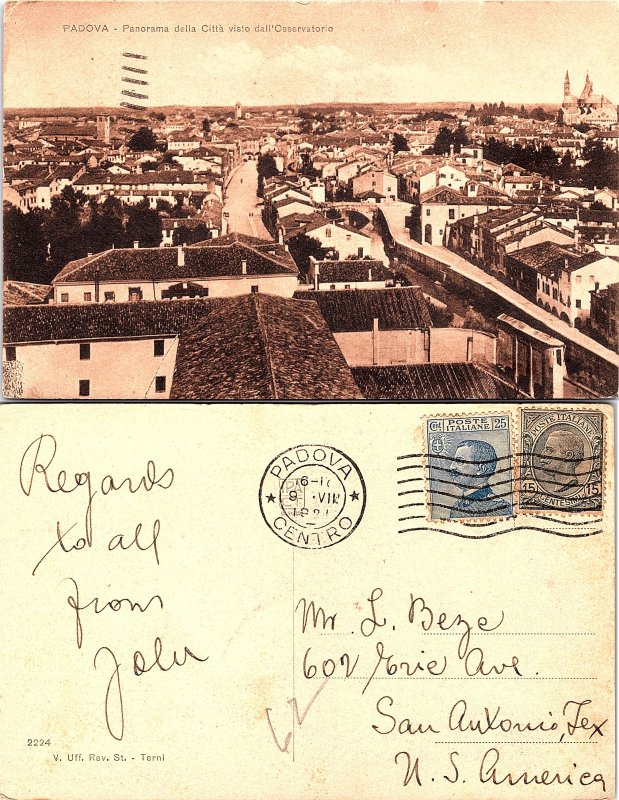 PADOVA - Panorama della Città visto dall'Osservatorio
PADOVA
6-
9 VIII
CENTRO
CENT 25
POSTE ITALIANE
POSTE ITALIAN
15 CENTESIMI 15
Regards
to all
from
John
Mr. L. Beze
602 Erie Ave.
San Antonio, Tex
U. S. America
62
2224
V. Uff. Rev. St. - Terni